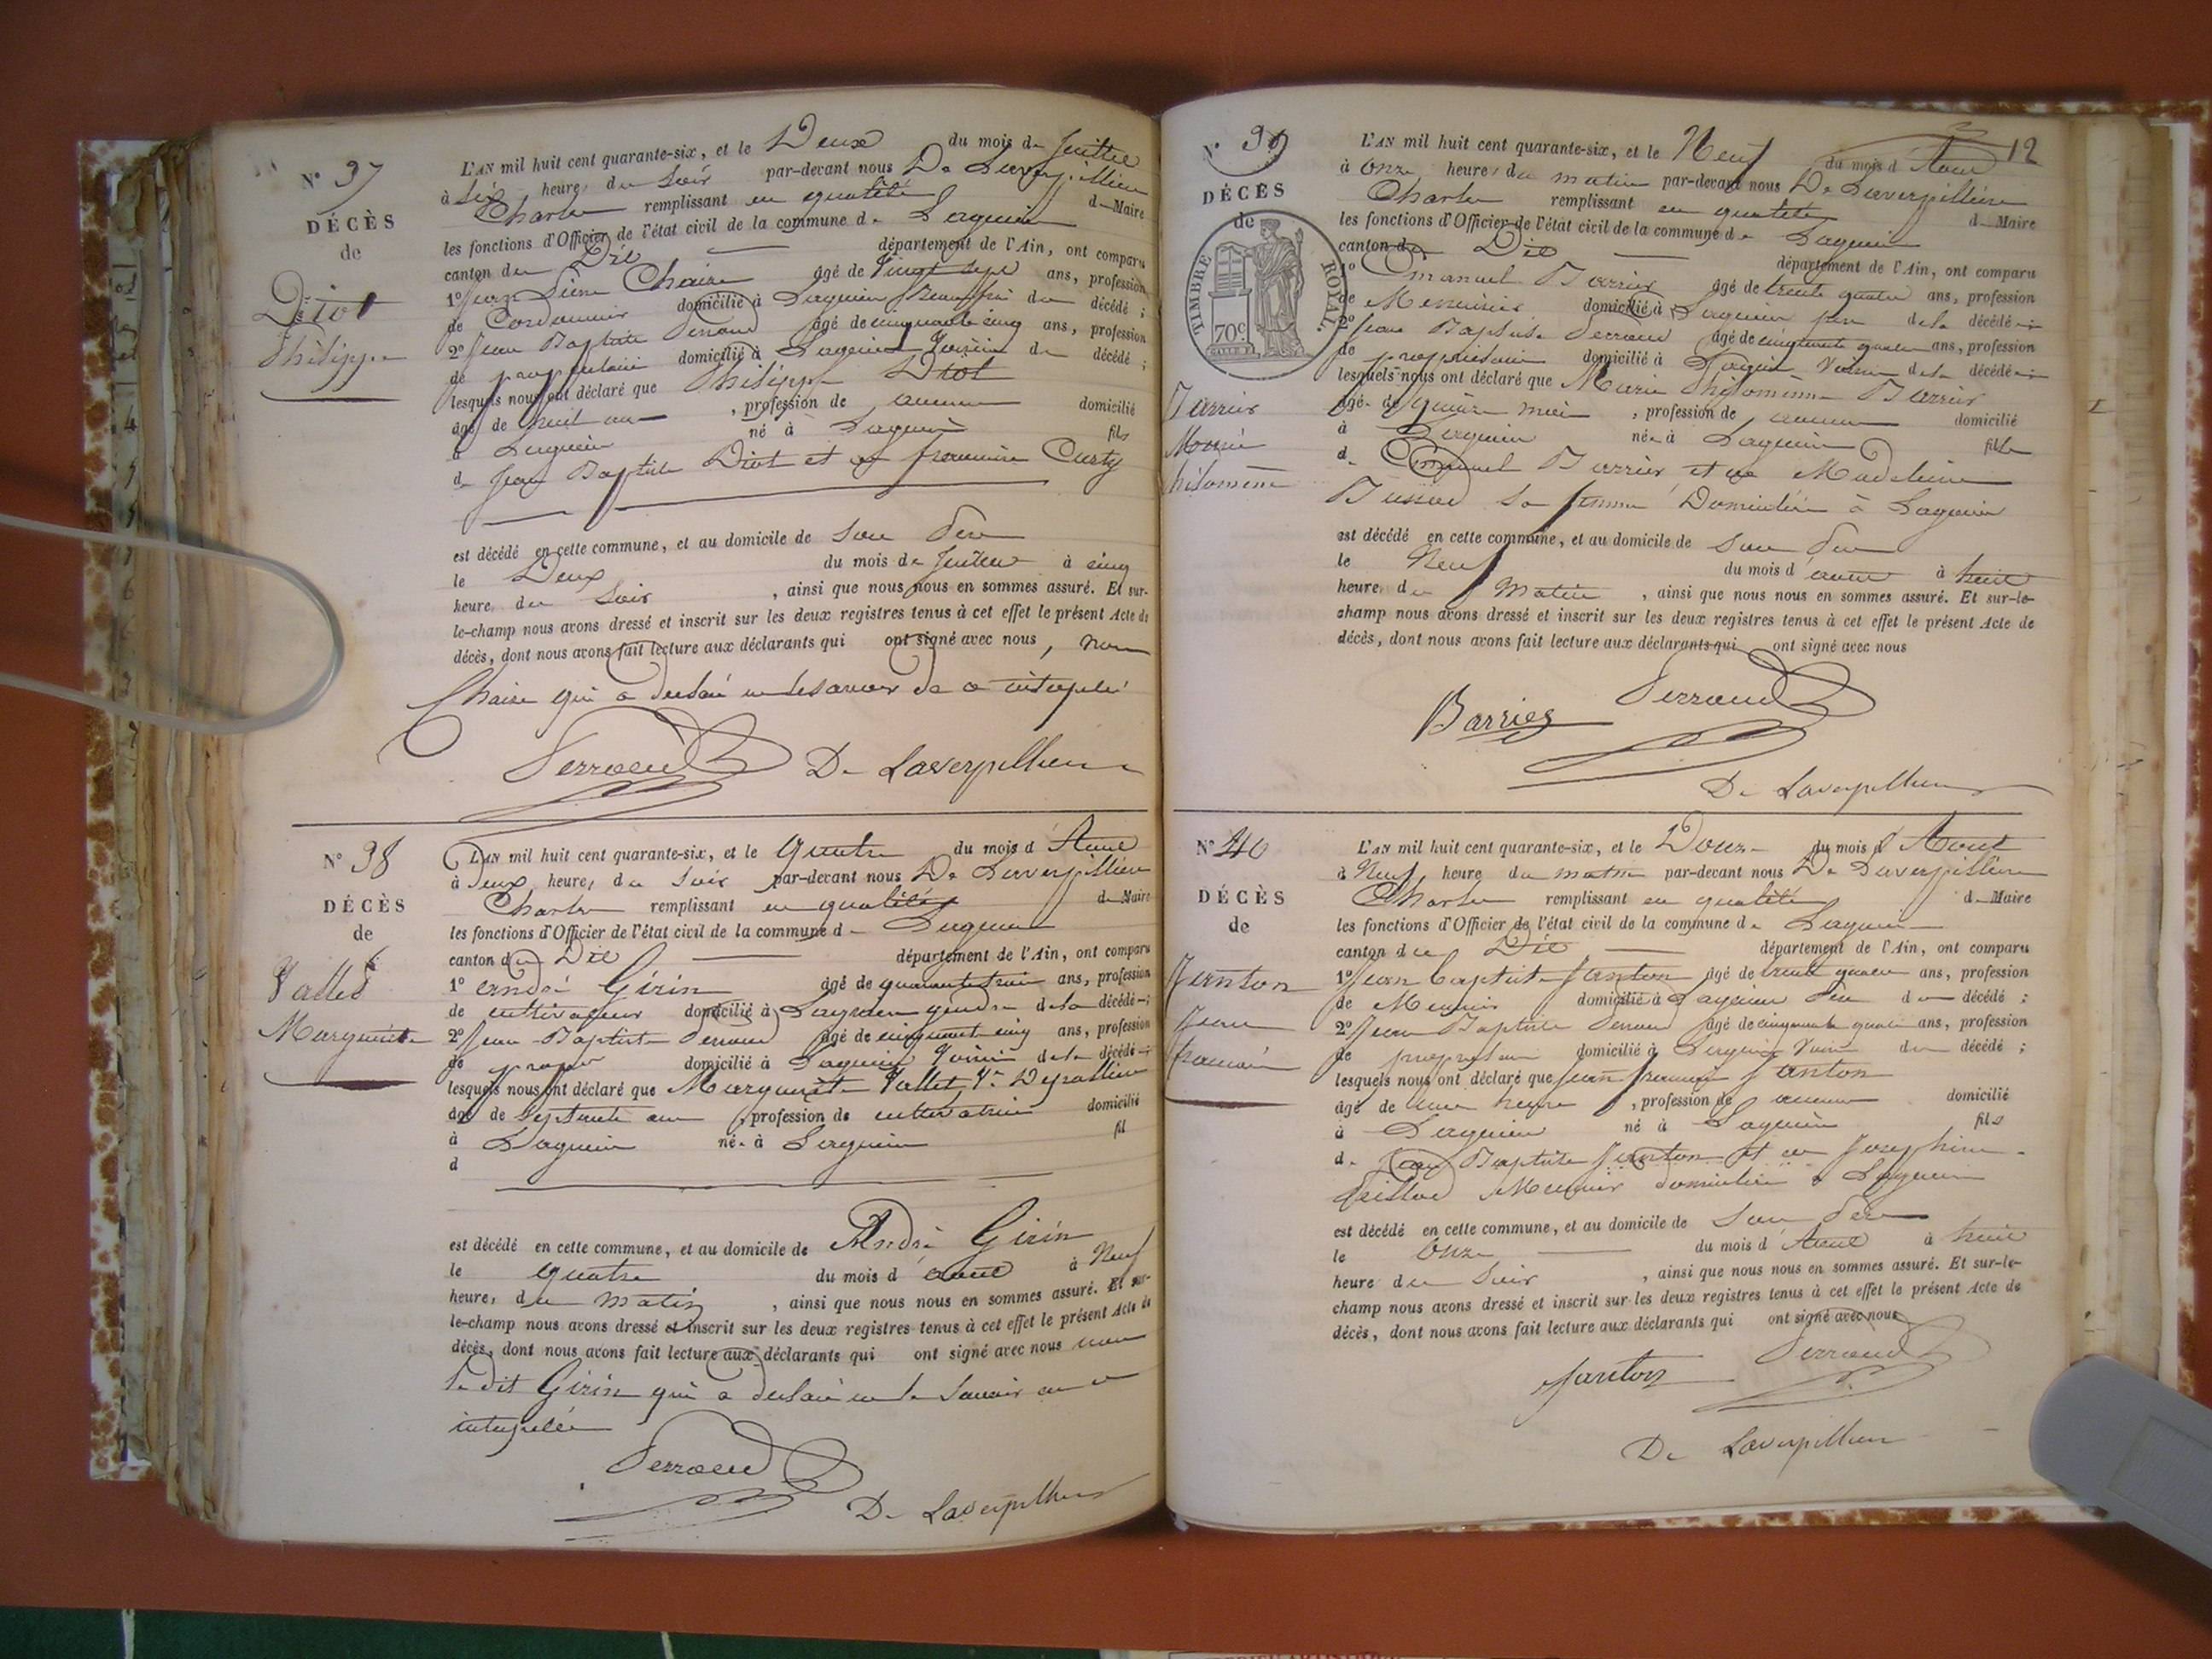 N° 37
DÉCÈS
de
Diot
Philippe
L'AN mil huit cent quarante-six, et le Deux du mois de Juillet
à six heures du soir par-devant nous De Laverpilliere
Charles remplissant en qualité de Maire
les fonctions d'Officier de l'état civil de la commune de Lagnieu
canton du Dit département de l'Ain, ont comparu
1° Jean Chaise âgé de vingt sept ans, profession
de Cordonnier domicilié à Lagnieu du décédé ;
2° Jean Baptiste Perraud âgé de cinquante cinq ans, profession
de propriétaire domicilié à Lagnieu Voisin du décédé ;
lesquels nous ont déclaré que Philippe Diot
âgé de huit ans , profession de aucune domicilié
à Lagnieu né à Lagnieu fils
de Jean Baptiste Diot et de francoise Curty
est décédé en cette commune, et au domicile de son Père
le Deux du mois de Juillet à cinq
heures du Soir , ainsi que nous nous en sommes assuré. Et sur-
le-champ nous avons dressé et inscrit sur les deux registres tenus à cet effet le présent Acte de
décès, dont nous avons fait lecture aux déclarants qui ont signé avec nous, non
Chaise qui a déclaré ne le savoir de ce interpelé
Perraud De Laverpilliere
N° 38
DÉCÈS
de
Vallet
Marguerite
L'AN mil huit cent quarante-six, et le quatre du mois d'Aout
à Deux heures du Soir par-devant nous De Laverpilliere
Charles remplissant en qualité de Maire
les fonctions d'Officier de l'état civil de la commune de Lagnieu
canton du Dit département de l'Ain, ont comparu
1° André Girin âgé de quarante trois ans, profession
de cultivateur domicilié à Lagnieu gendre de la décédée ;
2° Jean Baptiste Perraud âgé de cinquante cinq ans, profession
de propre domicilié à Lagnieu Voisin de la décédée ;
lesquels nous ont déclaré que Marguerite Vallet Ve
âgé de Septante ans , profession de cultivatrice domicilié
à Lagnieu née à Lagnieu fil
d
est décédé en cette commune, et au domicile de André Girin
le quatre du mois d'aout à Neuf
heures du matin , ainsi que nous nous en sommes assuré. Et sur-
le-champ nous avons dressé et inscrit sur les deux registres tenus à cet effet le présent Acte de
décès, dont nous avons fait lecture aux déclarants qui ont signé avec nous non
le dit Girin qui a déclaré ne le savoir de ce
interpelé
Perraud
De Laverpilliere
12
N° 39
DÉCÈS
de
TIMBRE ROYAL
70c
Barrier
Marie
hilomène
L'AN mil huit cent quarante-six, et le Neuf du mois d'Aout
à Onze heures du matin par-devant nous De Laverpilliere
Charles remplissant en qualité de Maire
les fonctions d'Officier de l'état civil de la commune de Lagnieu
canton du Dit département de l'Ain, ont comparu
1° Emanuel Barrier âgé de trente quatre ans, profession
de Menuisier domicilié à Lagnieu père de la décédée ;
2° Jean Baptiste Perraud âgé de cinquante quatre ans, profession
de propriétaire domicilié à Lagnieu Voisin de la décédée ;
lesquels nous ont déclaré que Marie Philomène Barrier
âgée de quinze mois , profession de aucune domicilié
à Lagnieu née à Lagnieu fille
de Emanuel Barrier et de Madeleine
sa femme Domiciliés à Lagnieu
est décédé en cette commune, et au domicile de son Père
le Neuf du mois d'aout à huit
heures du Matin , ainsi que nous nous en sommes assuré. Et sur-le-
champ nous avons dressé et inscrit sur les deux registres tenus à cet effet le présent Acte de
décès, dont nous avons fait lecture aux déclarants qui ont signé avec nous
Barrier Perraud
De Laverpilliere
N° 40
DÉCÈS
de
Janton
Jean
francois
L'AN mil huit cent quarante-six, et le Douze du mois d'Aout
à Neuf heures du matin par-devant nous De Laverpilliere
Charles remplissant en qualité de Maire
les fonctions d'Officier de l'état civil de la commune de Lagnieu
canton du Dit département de l'Ain, ont comparu
1° Jean Baptiste Janton âgé de trente quatre ans, profession
de Meunier domicilié à Lagnieu Père du décédé ;
2° Jean Baptiste Perraud âgé de cinquante quatre ans, profession
de propriétaire domicilié à Lagnieu Voisin du décédé ;
lesquels nous ont déclaré que Jean francois Janton
âgé de une heure , profession de aucune domicilié
à Lagnieu né à Lagnieu fils
de Jean Baptiste Janton et de Josephine
Meunier domiciliés à Lagnieu
est décédé en cette commune, et au domicile de son Père
le Onze du mois d'Aout à huit
heures du Soir , ainsi que nous nous en sommes assuré. Et sur-le-
champ nous avons dressé et inscrit sur les deux registres tenus à cet effet le présent Acte de
décès, dont nous avons fait lecture aux déclarants qui ont signé avec nous
Janton Perraud
De Laverpilliere